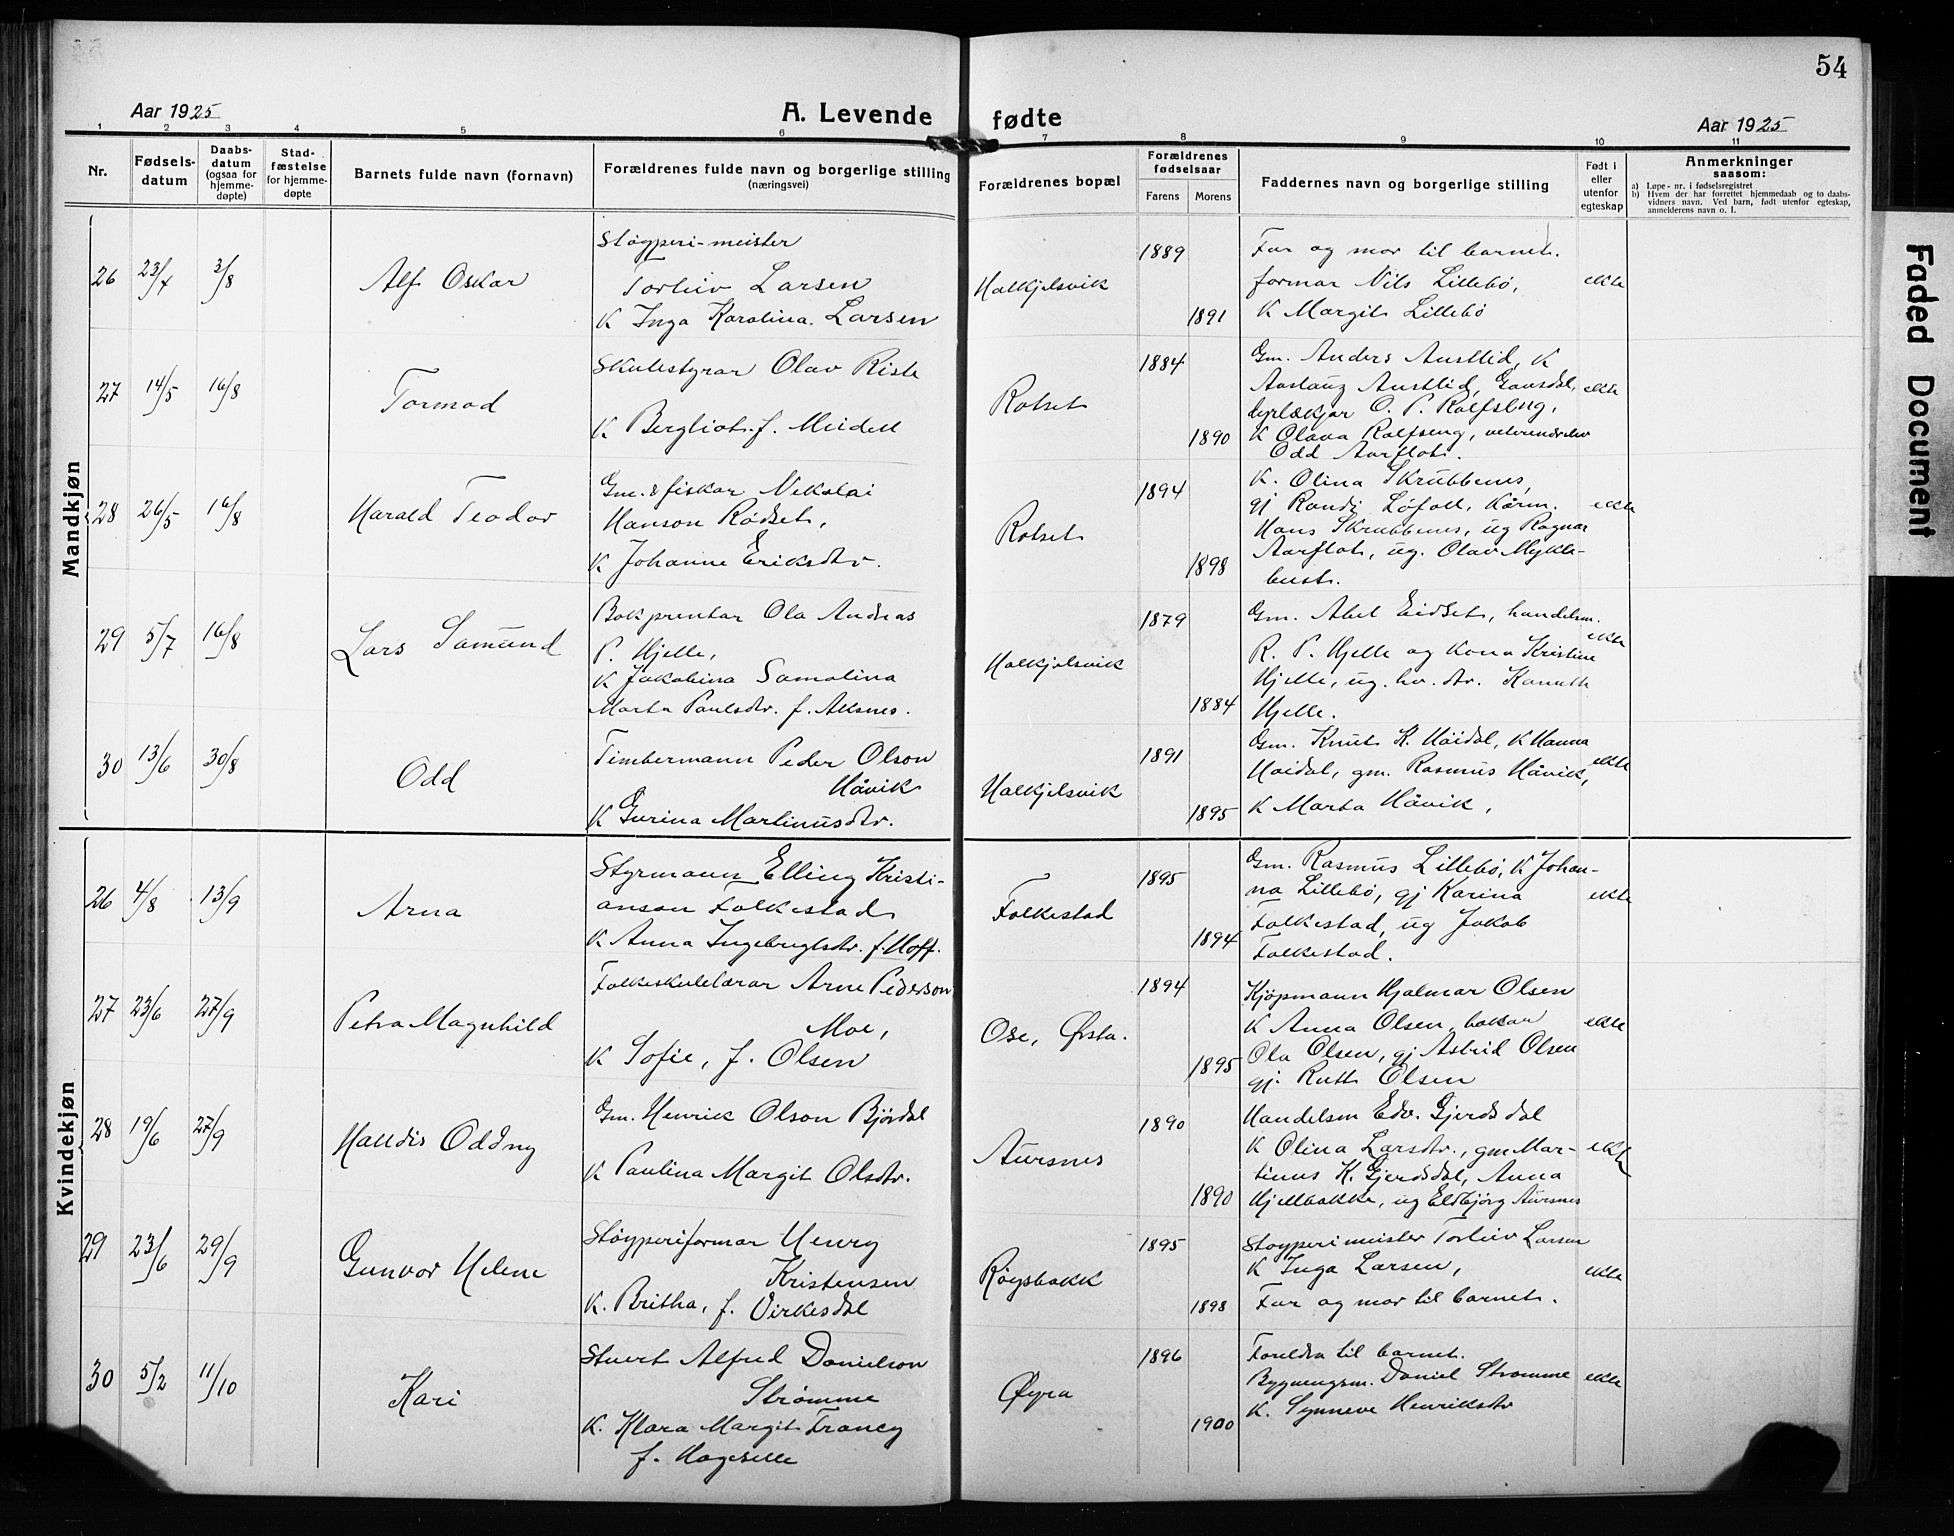 54
Aar 1925
A. Levende fødte
Aar 1925
1 2 3 4 5 6 7 8 9 10 11
Nr.
Fødsels-
datum
Daabs-
datum
(ogsaa for
hjemme-
døpte)
Stad-
fæstelse
for hjemme-
døpte
Barnets fulde navn (fornavn)
Forældrenes fulde navn og borgerlige stilling
(næringsvei)
Forældrenes bopæl
Forældrenes
fødselsaar
Farens Morens
Faddernes navn og borgerlige stilling
Født i
eller
utenfor
egteskap
Anmerkninger
saasom:
a) Løpe-nr. i fødselsregistret
b) Hvem der har forrettet hjemmedaab og to daabs-
vidners navn. Ved barn, født utenfor egteskap,
anmelderens navn o. l.
Mandkjøn
26 23/7 3/8
Alf Oskar
Støyperi-meister
Torleiv Larsen
K Inga Karolina Larsen
Halkjelsvik
1889
1891
Far og mor til barnet.
formar Nils Lillebø,
K Margit Lillebø
ekte
27 14/5 16/8
Tormod
Skulestyrar Olav Riste
K Bergliot f. Meidell
Rotset
1884
1890
Gm. Anders Austlid, K
Aaslaug Austlid, Gausdal,
dyrlækjar O. P. Rolfseng,
K Olava Rolfseng,
Odd Aarflot.
ekte
28 26/5 16/8
Harald Teodor
Gm. & fiskar Nikolai
Hanson Rødset,
K Johanne Eriksdtr.
Rotset
1894
1898
K. Olina Skrubbenes,
gj Randi Løfoll,
Hans Skrubbenes, ug Ragnar
Aarflot, ug. Olav Mykle-
bust.
ekte
29 5/7 16/8
Lars Samund
Bokprentar Ola Andreas
P. Hjelle,
K Jakobina Samolina
Marta Paulsdtr. f. Alsnes.
Halkjelsvik
1879
1884
Gm. Abel Eidset, handelsm.
R. P. Hjelle og kona Kristine
Hjelle, ug. hv. dtr.
Hjelle.
ekte
30 13/6 30/8
Odd
Timbermann Peder Olson
Håvik
K Gurina Martinusdtr.
Halkjelsvik
1891
1895
Gm. Knut K. Høidal, K Hanna
Høidal, gm. Rasmus Håvik,
K Marta Håvik,
ekte
Kvindekjøn
26 4/8 13/9
Arna
Styrmann Elling Kristi-
anson Folkestad
K Anna Ingebrigtsdtr. f. Hoff.
Folkestad
1895
1894
Gm. Rasmus Lillebø, K Johan-
na Lillebø, gj Karina
Folkestad, ug Jakob
Folkestad.
ekte
27 23/6 27/9
Petra Magnhild
Folkeskulelærar Arne Pederson
Moe,
K Sofie, f. Olsen
Ose, Ørsta.
1894
1895
Kjøpmann Hjalmar Olsen
K Anna Olsen, bakar
Ola Olsen, gj Astrid Olsen
gj. Ruth Olsen
ekte
28 19/6 27/9
Halldis Oddny
Gm. Henrik Olson Bjørdal
K Paulina Margit Olsdtr.
Aursnes
1890
1890
Handelsm Edv. Gjerdsdal
K Olina Larsdtr., gm Mar-
tinus K. Gjerdsdal, Anna
Hjellbakke, ug Eldbjørg Aursnes
ekte
29 23/6 29/9
Gunvor Helene
Støyperiformar Henry
Kristensen
K. Britha, f. Virkesdal
Røysbakk
1895
1898
Støyperimeister Torleiv Larsen
K Inga Larsen,
Far og mor til barnet.
ekte
30 5/2 11/10
Kari
Stuert Alfred Danielson
Strømme
K. Klara Margit Francy
f. Hageselle
Øyra
1896
1900
Foreldra til barnet.
Bygningsm. Daniel Strømme
K. Synneve Henriksdtr
ekte
Faded Document